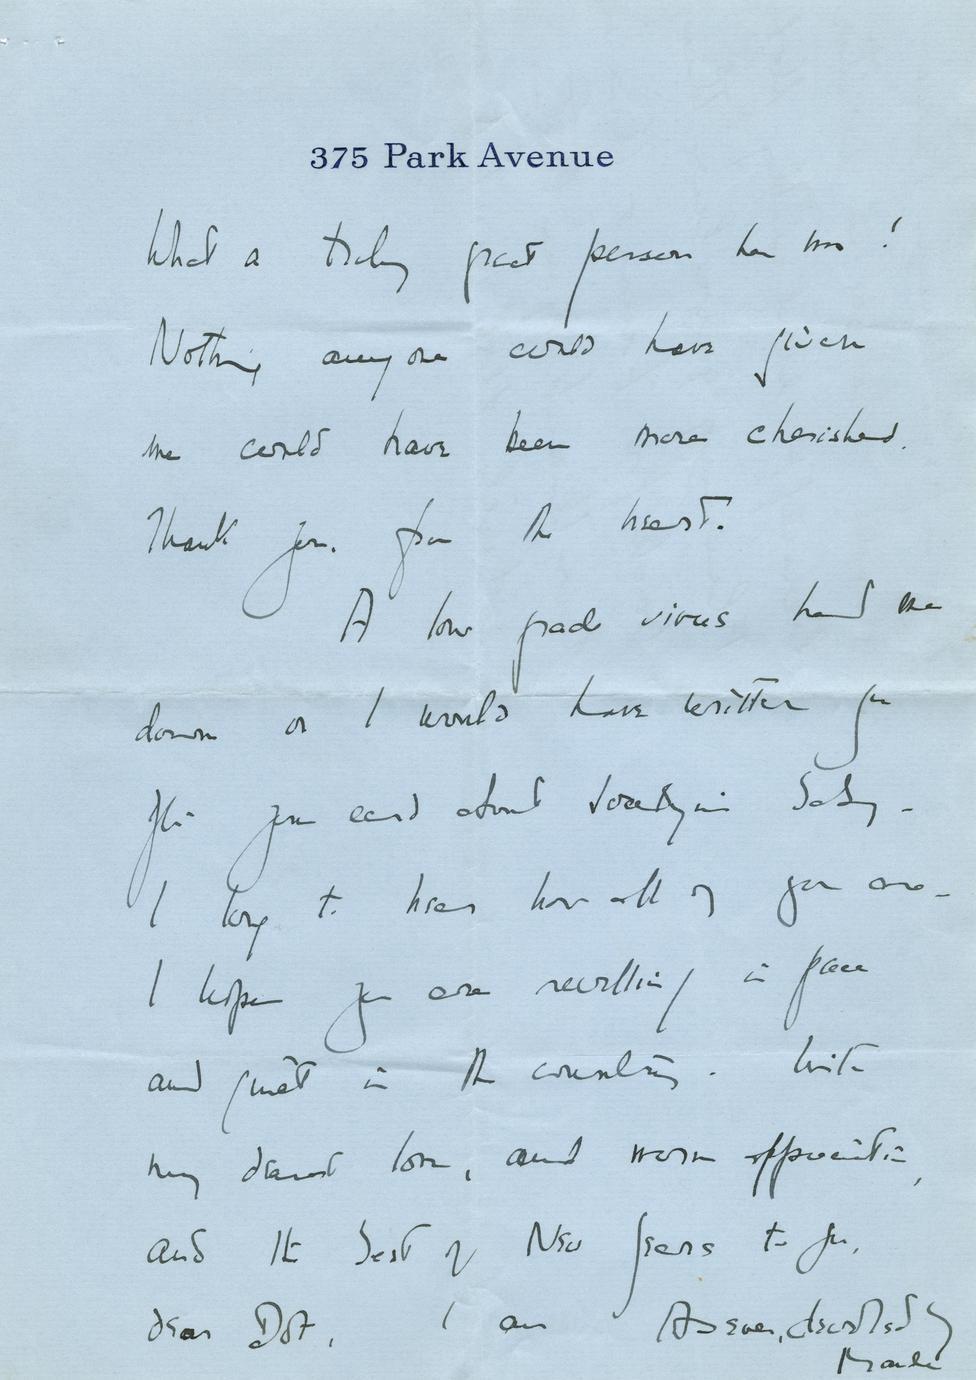 375 Park Avenue
What a truly great person he was!
Nothing anyone could have given
me could have been more cherished.
Thank you. from the heart.
A low grade virus had me
down or I would have written you
your card about
I long to hear how all of you are -
I hope you are in peace
and quiet in the country. With
my dearest love, and warm appreciation,
and the best of New Years to you,
dear Dot, I am As ever, devotedly